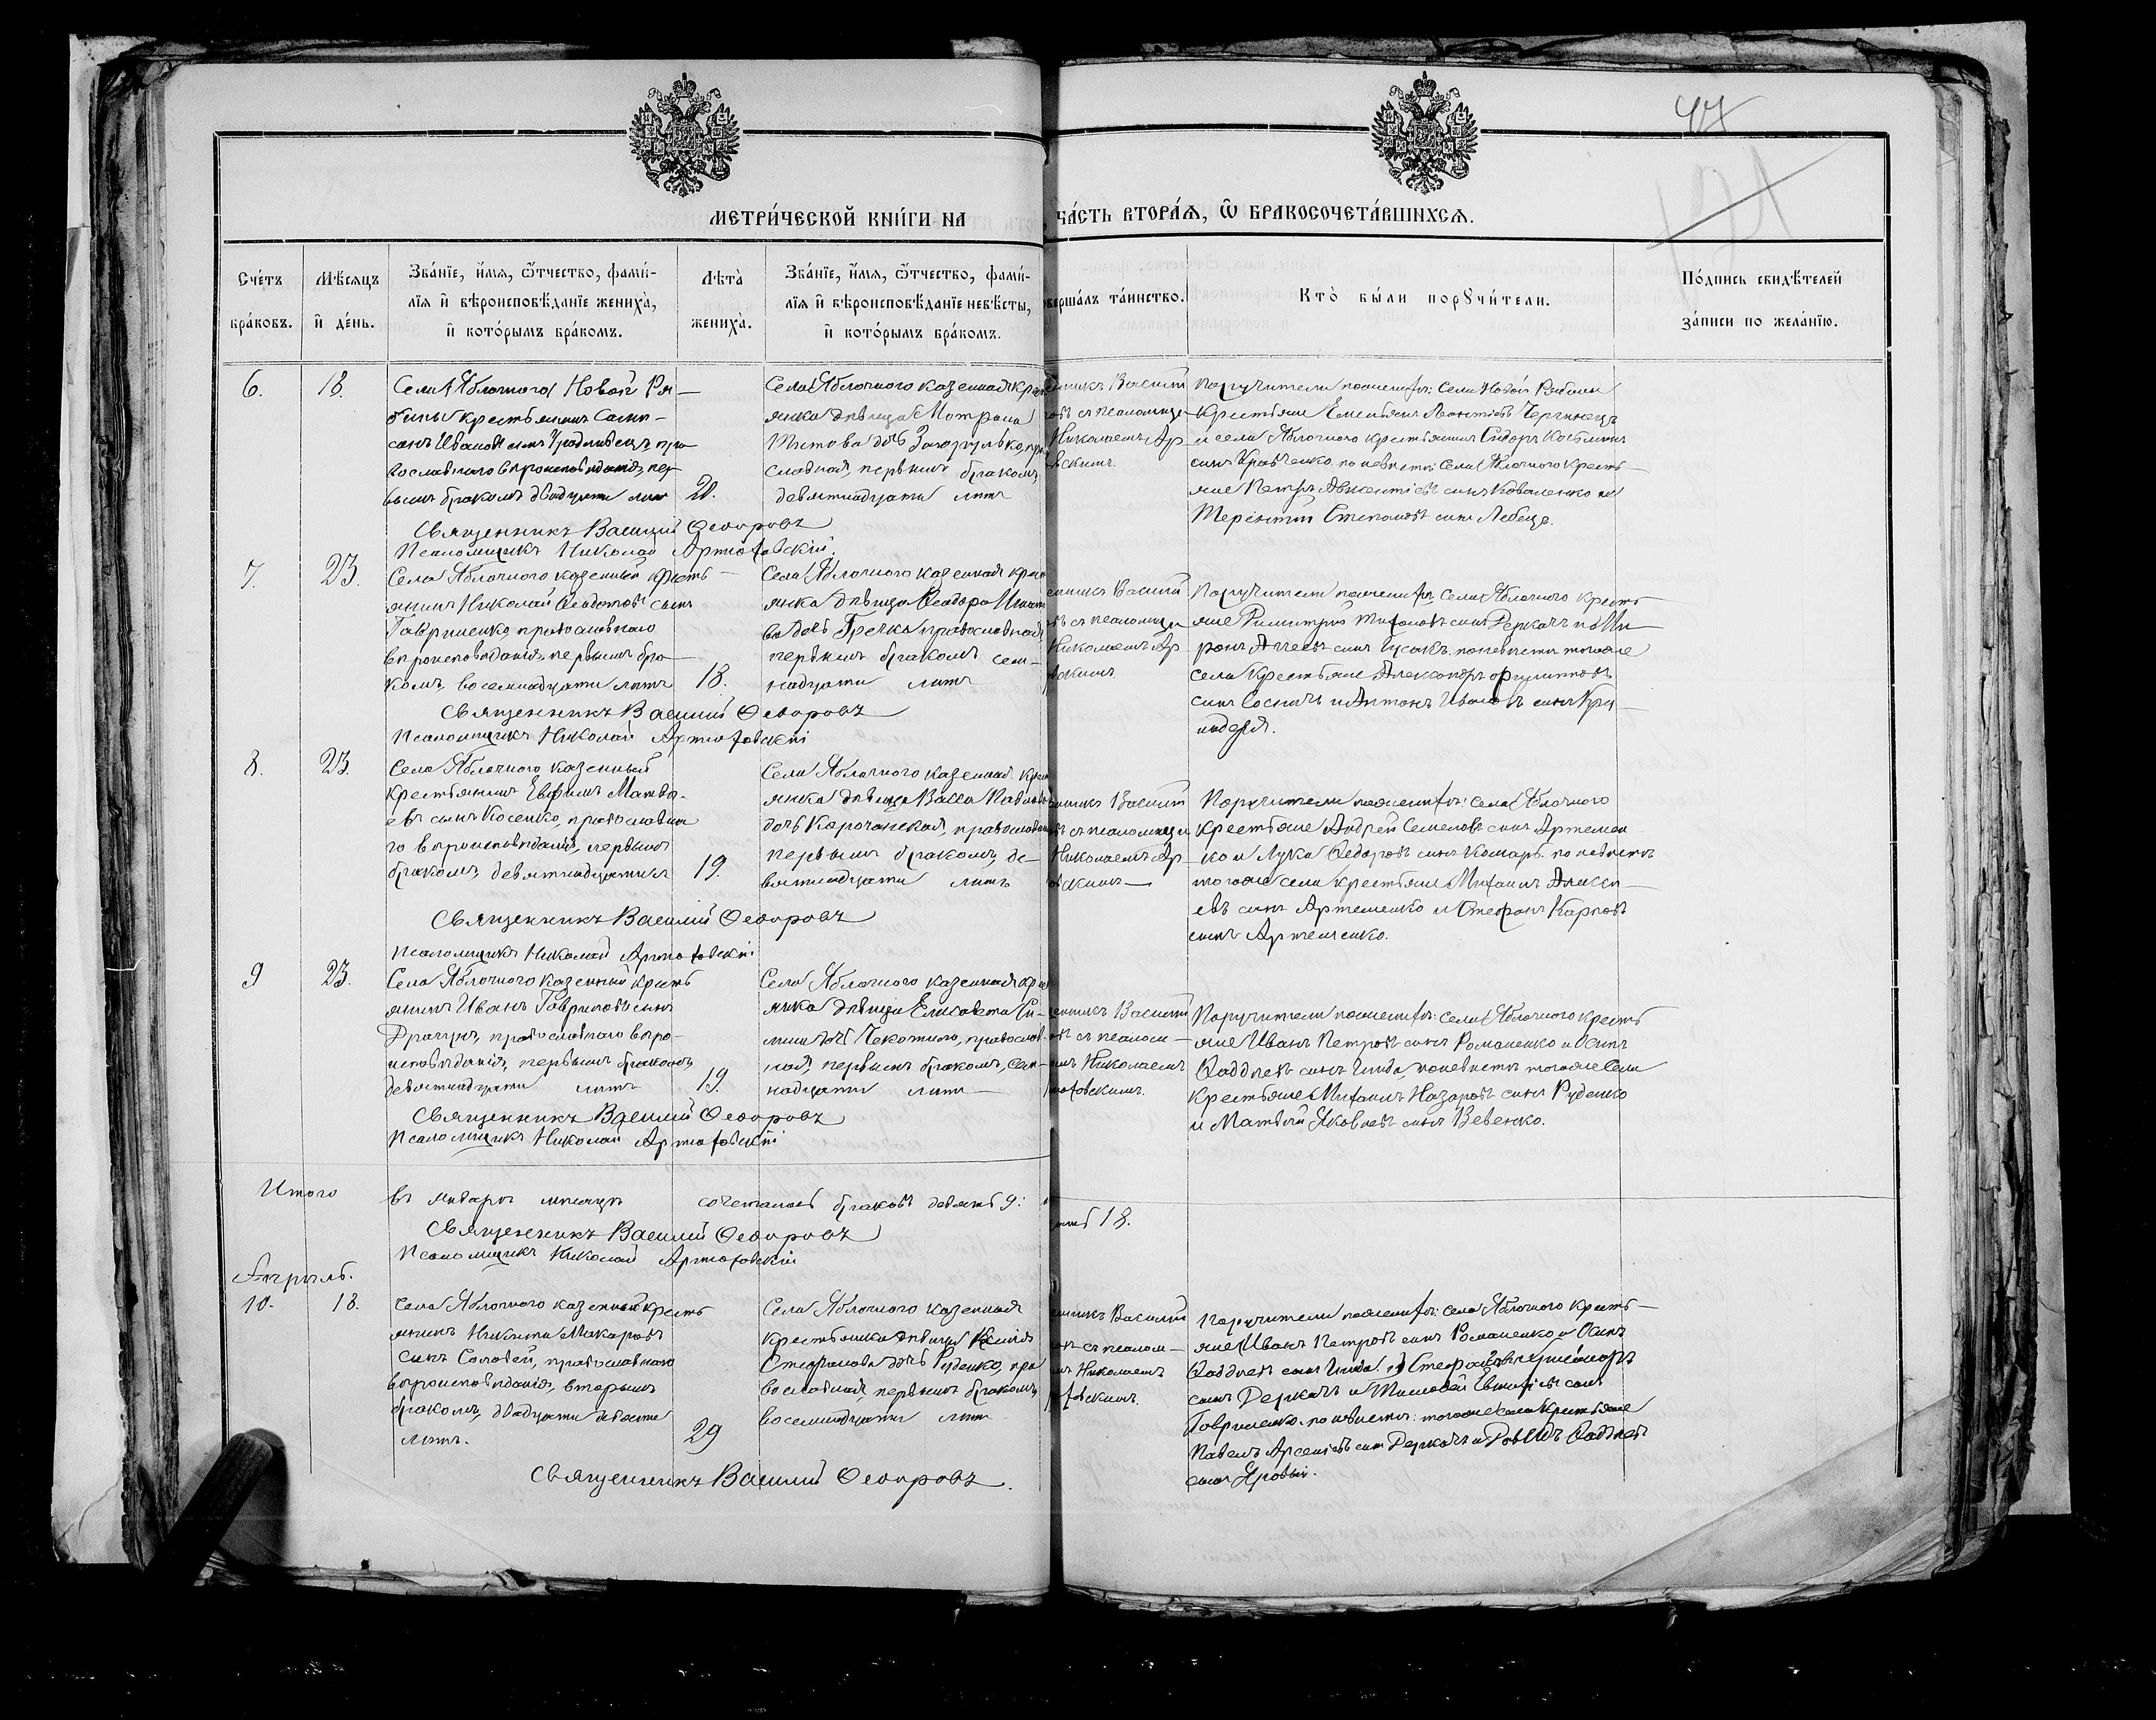 47
МЕТРИ́ЧЕСКОЙ КНИ́ГИ НА
ЧА́СТЬ ВТОРА́Я, Ѿ БРАКОСОЧЕТА́ВШИХСЯ.
Сче́тъ
бра́ковъ.
Мѣ́сяцъ
и҆ де́нь.
Зва́нїе, и҆́мя, ѻ҆́тчество, фами́-
лїя и҆ вѣроисповѣ́данїе жениха̀,
и҆ кото́рымъ бра́комъ.
Лѣта̀
жениха̀.
Зва́нїе, и҆́мя, ѻ҆́тчество, фами́-
лїя и҆ вѣроисповѣ́данїе невѣ́сты,
и҆ кото́рымъ бра́комъ.
овершалъ та́инство.
Кто̀ бы́ли порꙋчи́тели.
По́дпись свидѣ́телей
за́писи по жела́нїю.
6.
18.
Села Яблочного Новой Ря-
бины крестьянинъ Самп-
сонъ Ивановъ сынъ пра-
вославнаго вѣроисповѣданія, пер-
вымъ бракомъ двадцати лѣтъ
20.
Села Яблочного казенная крес
янка дѣвица Мотрона
Титова дочь
славная, первымъ бракомъ
девятнадцати лѣтъ
енникъ Василій
овъ съ псаломщи
Николаемъ Ар
вскимъ.
Поручители по женихѣ: Села Новой Рябины
крестьяне Емельянъ Леонтіевъ
и села Яблочного крестьянинъ Сидоръ
сынъ Кравченко. по невѣстѣ: Села Яблочного кресть-
яне Петръ Авксентіевъ сынъ Коваленко и
Терентій Степановъ сынъ Лебедь.
Священникъ Василій Ѳедоровъ
Псаломщикъ Николай Артюховскій.
7.
23.
Села Яблочного казенный кресть-
янинъ Николай Ѳедотовъ сынъ
Гавриленко, православнаго
вѣроисповѣданія, первымъ бра-
комъ, восемнадцати лѣтъ
18.
Села Яблочного казенная крест
янка дѣвица Ѳеодора Игнат
ва дочь Гречка православная,
первымъ бракомъ сем-
надцати лѣтъ
енникъ Василій
овъ съ псаломщи
Николаемъ Ар
вскимъ
Поручители по женихѣ: Села Яблочного кресть
яне Димитрій сынъ Деркачъ и Ми
ронъ сынъ Гусакъ. по невѣстѣ тогоже
села Крестьяне Александръ Филиповъ
сынъ Сосничъ и Антонъ Ивановъ сынъ
Священникъ Василій Ѳедоровъ
Псаломщикъ Николай Артюховскій
8.
23.
Села Яблочного казенный
крестьянинъ Евфимъ Матвѣ-
евъ сынъ Косенко, православна
го вѣроисповѣданія, первымъ
бракомъ, девятнадцати л
19.
Села Яблочного казенная крест
янка дѣвица Васса Павлова
дочь Корочанская, православная
первымъ бракомъ, де-
вятнадцати лѣтъ
енникъ Василій
овъ съ псаломщи
Николаемъ Ар
вскимъ—
Поручители по женихѣ: Села Яблочного
крестьяне Андрей Семеновъ сынъ Артемен
ко и Лука Ѳедоровъ сынъ Комаръ. по невѣстѣ
тогоже села крестьяне Михаилъ Алексѣ-
евъ сынъ Артеменко и Стефанъ Карповъ
сынъ Артеменко.
Священникъ Василій Ѳедоровъ
Псаломщикъ Николай Артюховскій
9
23.
Села Яблочного казенный кресть
янинъ Иванъ Гавриловъ сынъ
Драгунъ, православнаго вѣро-
исповѣданія, первымъ бракомъ
девятнадцати лѣтъ
19.
Села Яблочного казенная крес
янка дѣвица Елисавета
дочь Чекотило, православ-
ная, первымъ бракомъ, сем-
надцати лѣтъ
енникъ Василій
овъ съ псалом—
мъ Николаемъ
юховскимъ.
Поручители по женихѣ: Села Яблочного кресть
яне Иванъ Петровъ сынъ Романенко и Осипъ
Ѳаддеевъ сынъ по невѣстѣ тогоже Села
крестьяне Михаилъ Назаровъ сынъ Руденко
и Матвѣй Яковлевъ сынъ Вевенко.
Священникъ Василій Ѳедоровъ
Псаломщикъ Николай Артюховскій
Итого
въ январѣ мѣсяцѣ сочеталось браковъ девять 9:
18.
Священникъ Василій Ѳедоровъ
Псаломщикъ Николай Артюховскій
Апрѣль.
10.
18.
Села Яблочного казенный кресть
янинъ Никита Макаровъ
сынъ Соловей, православнаго
вѣроисповѣданія, вторымъ
бракомъ, двадцати девяти
лѣтъ.
29
Села Яблочного казенная
крестьянка дѣвица Ксенія
Стефанова дочь Руденко, пра
вославная, первымъ бракомъ,
восемнадцати лѣтъ
енникъ Василій
овъ съ псалом—
мъ Николаемъ
юховскимъ.
Поручители по женихѣ: Села Яблочного кресть-
яне Иванъ Петровъ сынъ Романенко и Осипъ
Ѳаддеевъ сынъ
сынъ Деркачъ и Тимофей сынъ
Гавриленко. по невѣстѣ: тогоже села крестьяне
Павелъ Арсеніевъ сынъ Деркачъ и Ѳаддеевъ
сынъ Яровый.
Священникъ Василій Ѳедоровъ.